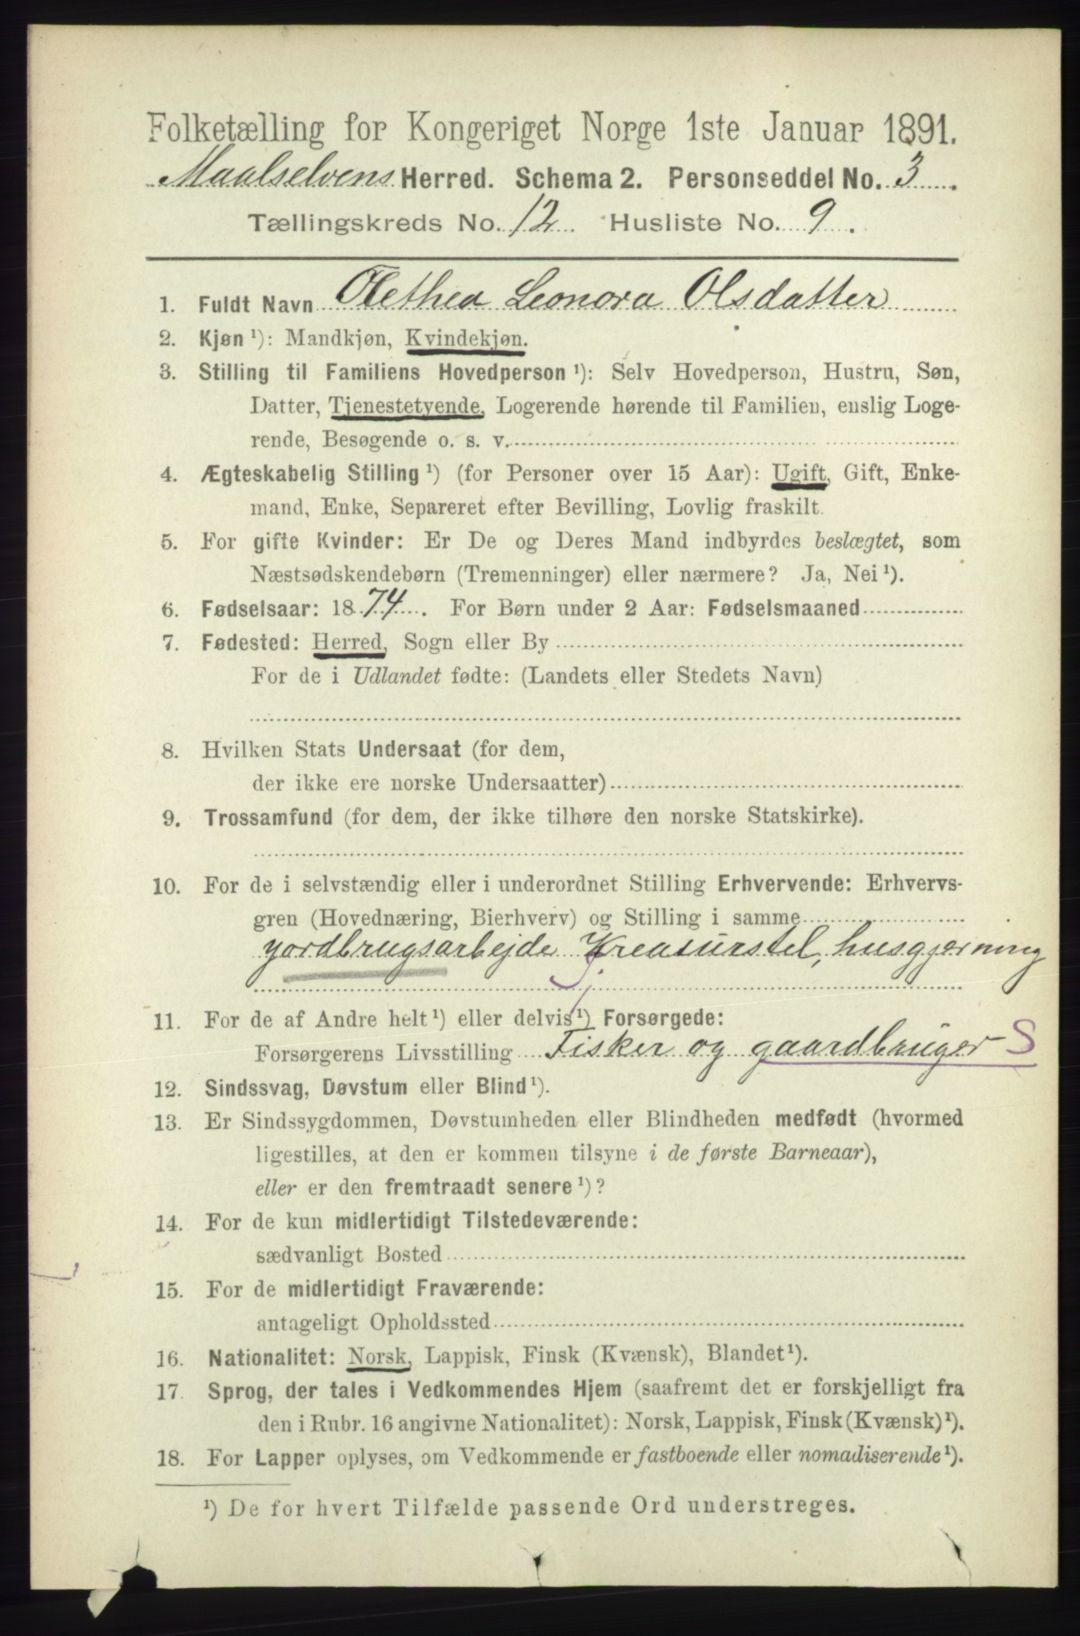 Folketælling for Kongeriget Norge 1ste Januar 1891.
Maalselvens Herred. Schema 2. Personseddel No. 3.
Tællingskreds No. 12 Husliste No. 9.
1. Fuldt Navn Olethea Leonora Olsdatter
2. Kjøn ¹): Mandkjøn, Kvindekjøn.
3. Stilling til Familiens Hovedperson ¹): Selv Hovedperson, Hustru, Søn,
Datter, Tjenestetyende, Logerende hørende til Familien, enslig Loge-
rende, Besøgende o. s. v.
4. Ægteskabelig Stilling ¹) (for Personer over 15 Aar): Ugift, Gift, Enke-
mand, Enke, Separeret efter Bevilling, Lovlig fraskilt.
5. For gifte Kvinder: Er De og Deres Mand indbyrdes beslægtet, som
Næstsødskendebørn (Tremenninger) eller nærmere? Ja, Nei ¹).
6. Fødselsaar: 1874. For Børn under 2 Aar: Fødselsmaaned
7. Fødested: Herred, Sogn eller By
For de i Udlandet fødte: (Landets eller Stedets Navn)
8. Hvilken Stats Undersaat (for dem,
der ikke ere norske Undersaatter)
9. Trossamfund (for dem, der ikke tilhøre den norske Statskirke).
10. For de i selvstændig eller i underordnet Stilling Erhvervende: Erhvervs-
gren (Hovednæring, Bierhverv) og Stilling i samme
yordbrugsarbejde Kreaturstel, husgjerning
11. For de af Andre helt ¹) eller delvis ¹) Forsørgede:
Forsørgerens Livsstilling Fisker og gaardbruger S
12. Sindssvag, Døvstum eller Blind ¹).
13. Er Sindssygdommen, Døvstumheden eller Blindheden medfødt (hvormed
ligestilles, at den er kommen tilsyne i de første Barneaar),
eller er den fremtraadt senere ¹)?
14. For de kun midlertidigt Tilstedeværende:
sædvanligt Bosted
15. For de midlertidigt Fraværende:
antageligt Opholdssted
16. Nationalitet: Norsk, Lappisk, Finsk (Kvænsk), Blandet ¹).
17. Sprog, der tales i Vedkommendes Hjem (saafremt det er forskjelligt fra
den i Rubr. 16 angivne Nationalitet): Norsk, Lappisk, Finsk (Kvænsk) ¹).
18. For Lapper oplyses, om Vedkommende er fastboende eller nomadiserende ¹).
¹) De for hvert Tilfælde passende Ord understreges.